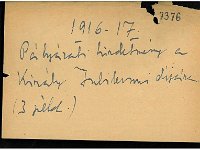 7376
1916-17.
Pályázati hirdetmény a
Király Jubileumi díjra
(3 péld.)